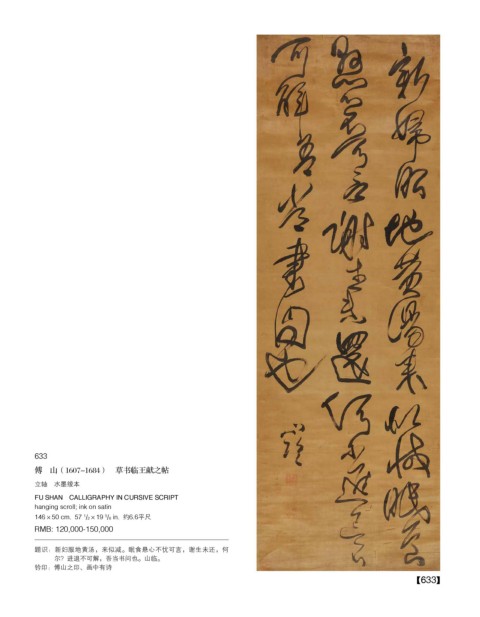 新婦服地黃湯來似減眠食
懸心不可言謝生未還何
可解吾當書問也
山臨
633
傅　山（1607-1684）　草书临王献之帖
立轴　水墨绫本
FU SHAN　CALLIGRAPHY IN CURSIVE SCRIPT
hanging scroll; ink on satin
146×50 cm.  57 1/2×19 5/8 in.  约6.6平尺
RMB: 120,000-150,000
题识：新妇服地黄汤，来似减。眠食悬心不忧可言，谢生未还，何
尔？进退不可解，吾当书问也。山临。
钤印：傅山之印、画中有诗
【633】